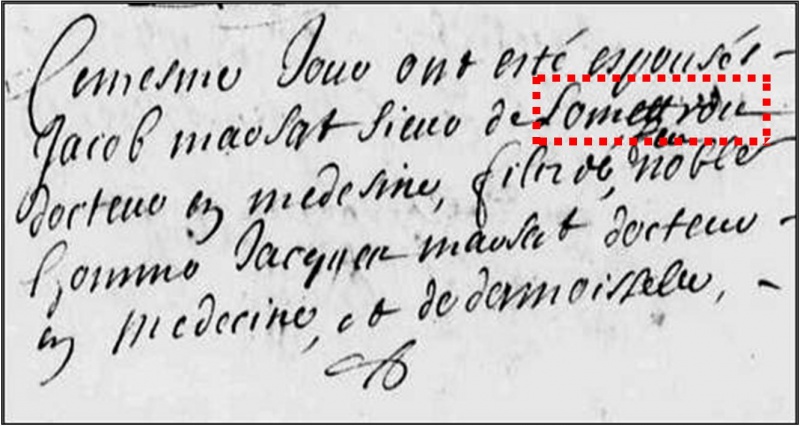 Cemesme Jour ont esté espousés
Jacob marsat sieur de
docteur en medesine, filz de, feu noble
homme Jacques marsat docteur
en medecine, et de damoiselle,